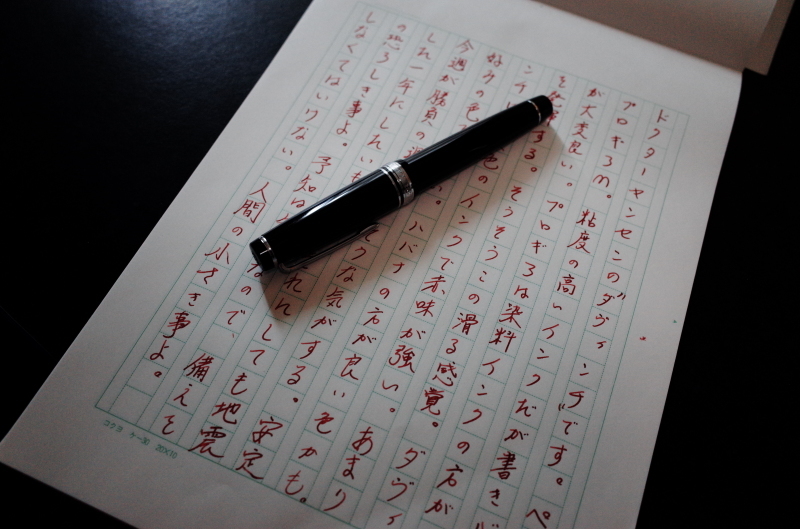 ドクターヤンセンのダヴィンチです。ペ
プロギ3M。粘度の高いインクだが書き
が大変良い。プロギ3は染料インクの方が
する。そうそうこの滑る感覚。ダヴィ
ンチ 色のインクで赤味が強い。あまり
好みの色 ハバナの方が良い色かも。
今週が勝負の 気がする。安定
した一年にしたいも にしても地震
の恐ろしき事よ。予知は なので、備えを
しなくてはいけない。人間の小さき事よ。
コクヨ ケ-30 20×10